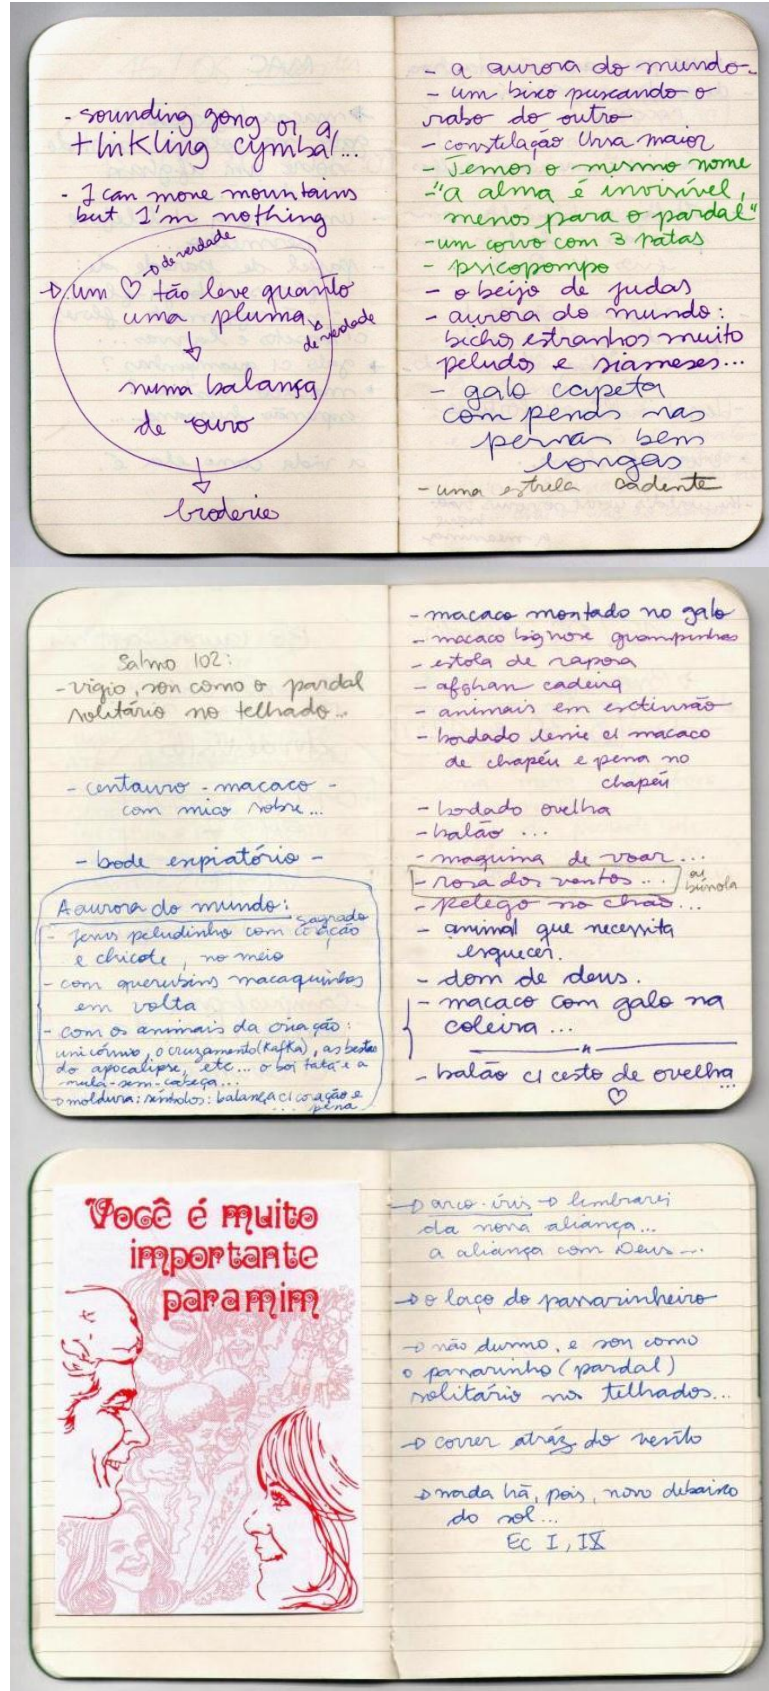 - sounding gong or a
thinkling cymbal...
- I can move mountains
but I'm nothing
→ de verdade
→ um ♡ tão leve quanto
uma pluma
→ de verdade
numa balança
de ouro
broderie
- a aurora do mundo -
- um bixo puxando o
rabo do outro
- constelação Ursa maior
- Temos o mesmo nome
- "a alma é invisível,
menos para o pardal"
- um corvo com 3 patas
- psicopompo
- o beijo de judas
- aurora do mundo:
bichos estranhos muito
peludos e siameses...
- galo capeta
com penas nas
pernas bem
longas
- uma estrela cadente
Salmo 102:
- vigio, sou como o pardal
solitário no telhado...
- centauro - macaco -
com mico sobre...
- bode expiatório -
A aurora do mundo:
- Jesus peludinho com coração sagrado
e chicote, no meio
- com querubins macaquinhos
em volta
- com os animais da criação:
unicórnio, o cruzamento (Kafka), as bestas
do apocalipse, etc... o boi tatá e a
mula-sem-cabeça...
→ moldura: símbolos: balança c/ coração e
... pena
- macaco montado no galo
- macaco big nose grampinhos
- estola de raposa
- afghan cadeira
- animais em extinsão
- bordado c/ macaco
de chapéu e pena no
chapéu
- bordado ovelha
- balão ...
- maquina de voar...
- rosa dos ventos...
- pelego no chão...
- animal que necessita
esquecer.
- dom de deus.
- macaco com galo na
coleira...
- balão c/ cesto de ovelha...
♡
Você é muito
importante
para mim
→ arco-íris → lembrarei
da nova aliança...
a aliança com Deus...
→ o laço do passarinheiro
→ não durmo, e sou como
o passarinho (pardal)
solitário nos telhados...
→ correr atráz do vento
→ nada há, pois, novo debaixo
do sol...
Ec I, IX